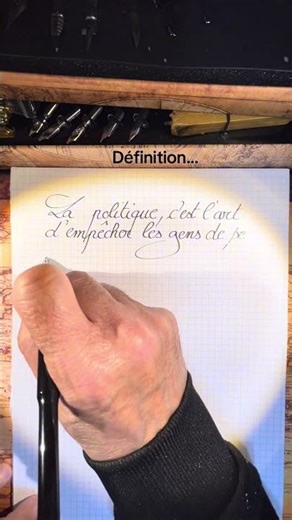 Définition...
La politique, c'est l'art
d'empêcher les gens de pe